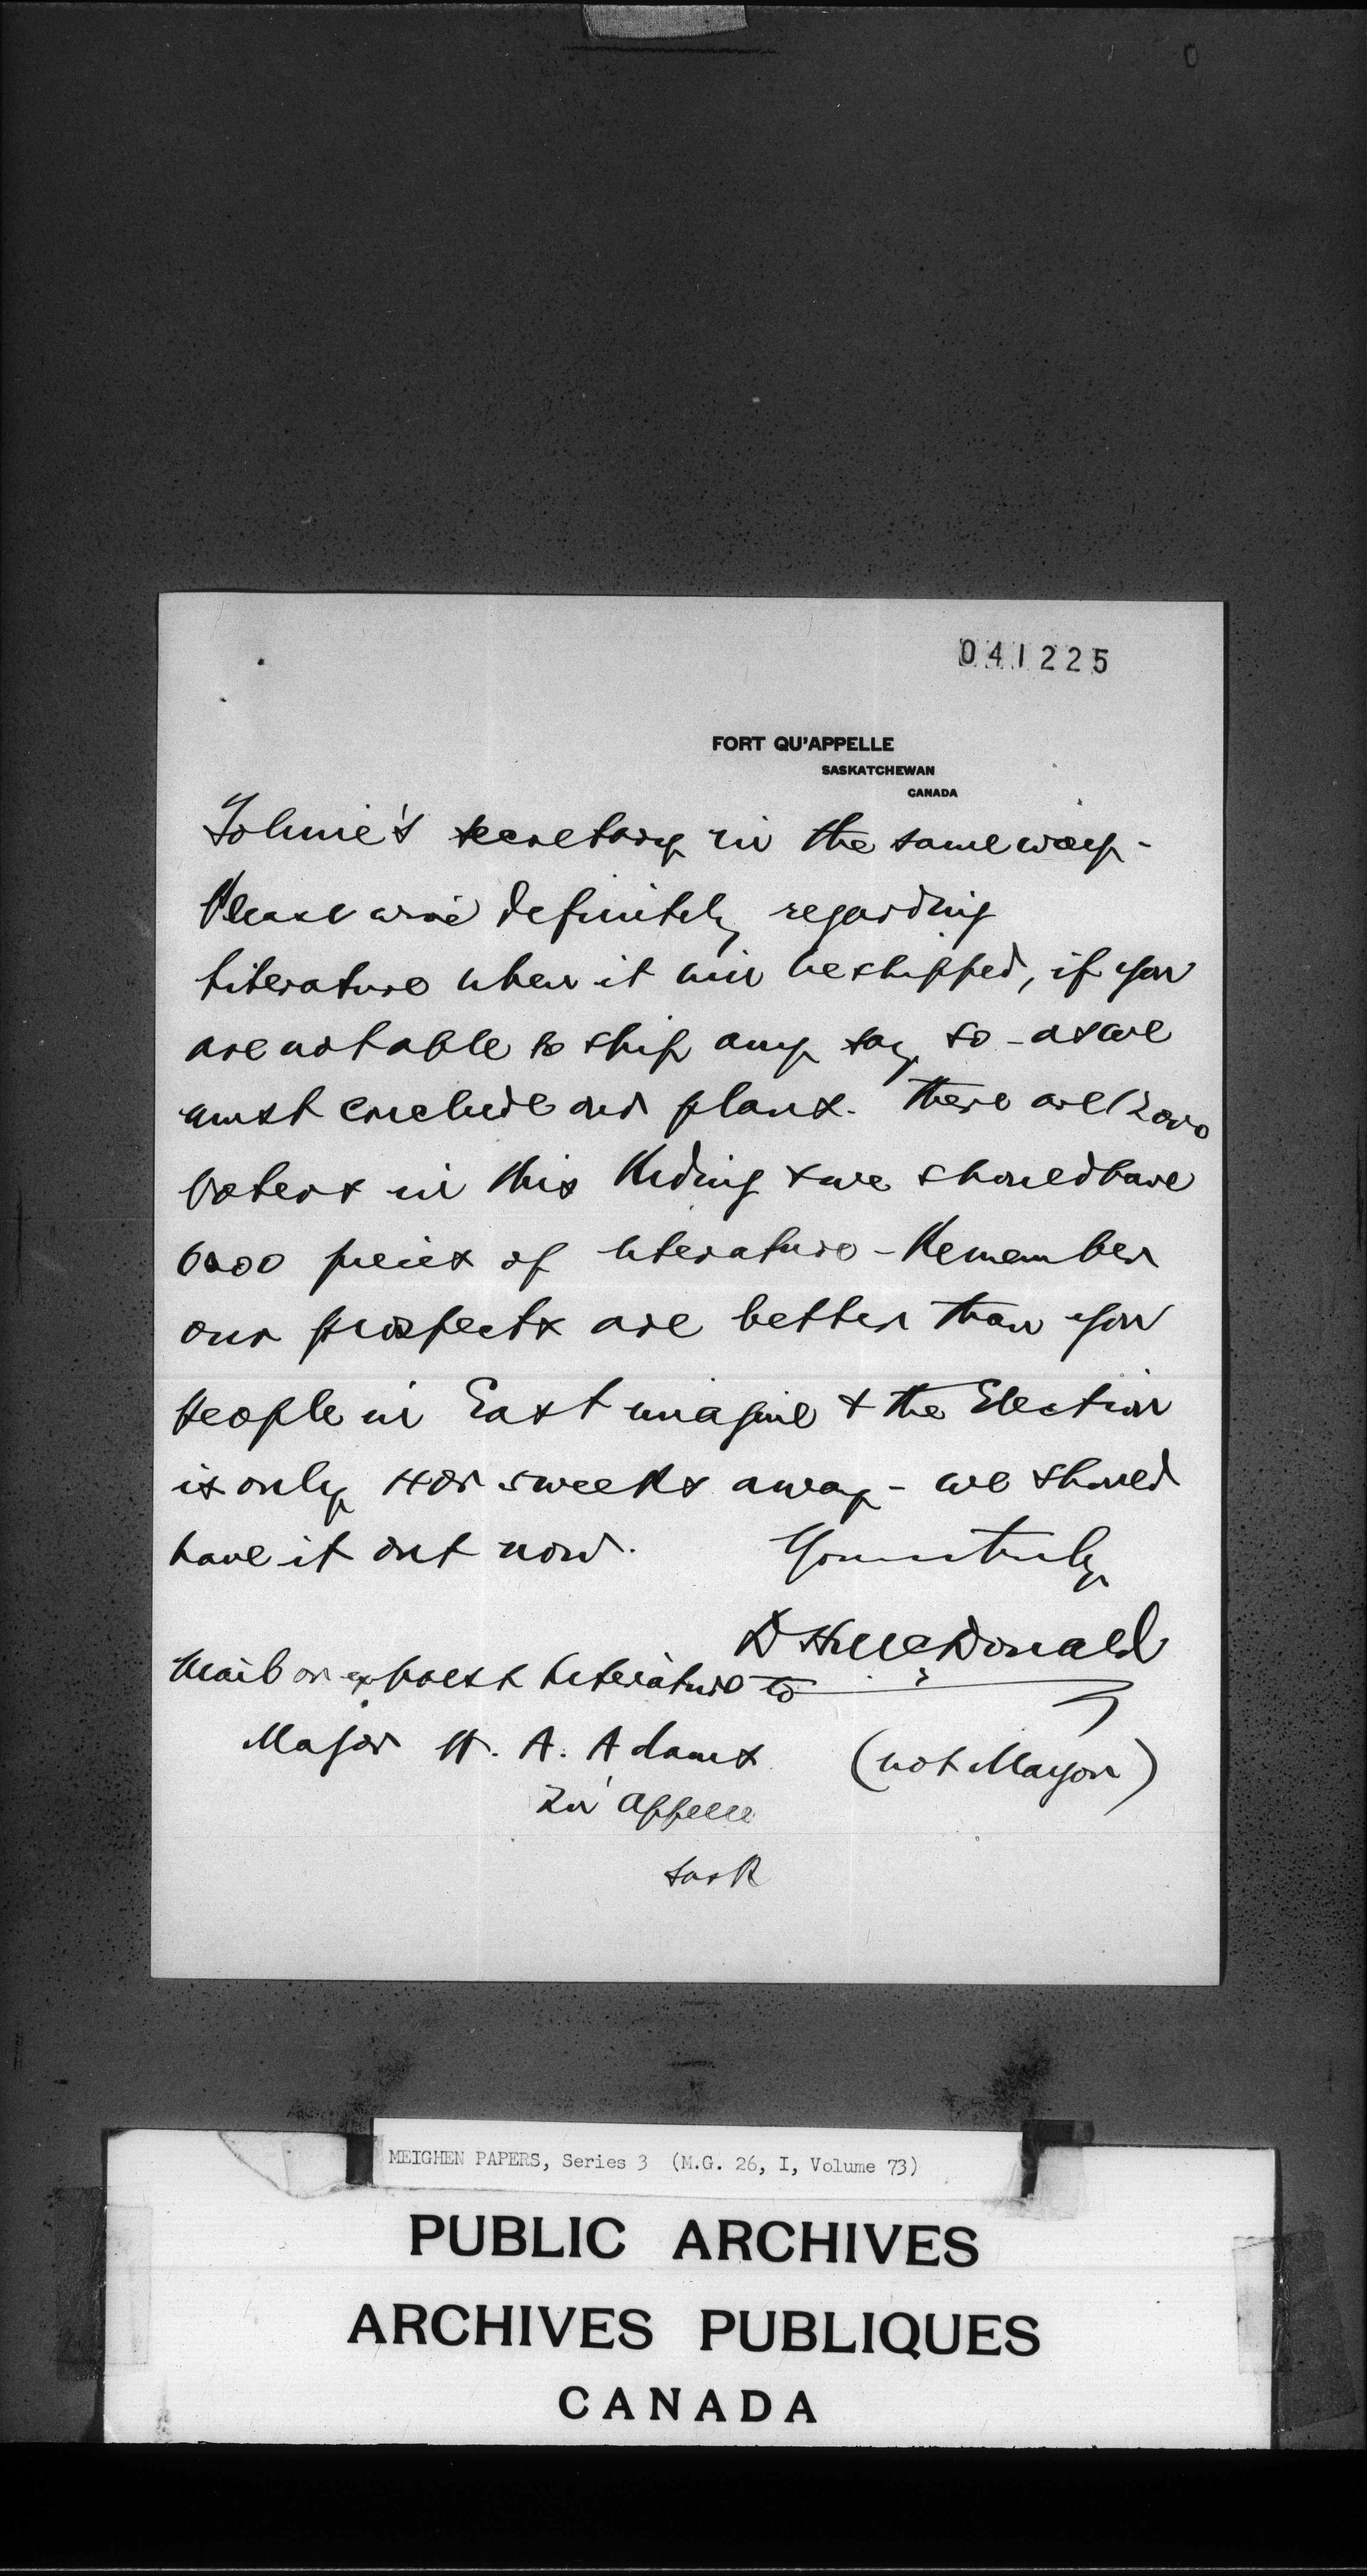 041225
FORT QU'APPELLE
SASKATCHEWAN
CANADA
Tolmie's secretary in the same way -
Please wire definitely regarding
literature when it will be shipped, if you
are not able to ship any say so - as we
must conclude our plans. There are 12000
voters in this Riding & we should have
6000 pieces of literature - Remember
our prospects are better than you
people in East imagine & the Election
is only 4 or 5 weeks away - we should
have it out now. Yours truly
D H McDonald
Mail or express literature to
Major A. Adams (not Mayor)
Qu'Appelle
Sask
MEIGHEN PAPERS, Series 3 (M.G. 26, I, Volume 73)
PUBLIC ARCHIVES
ARCHIVES PUBLIQUES
CANADA